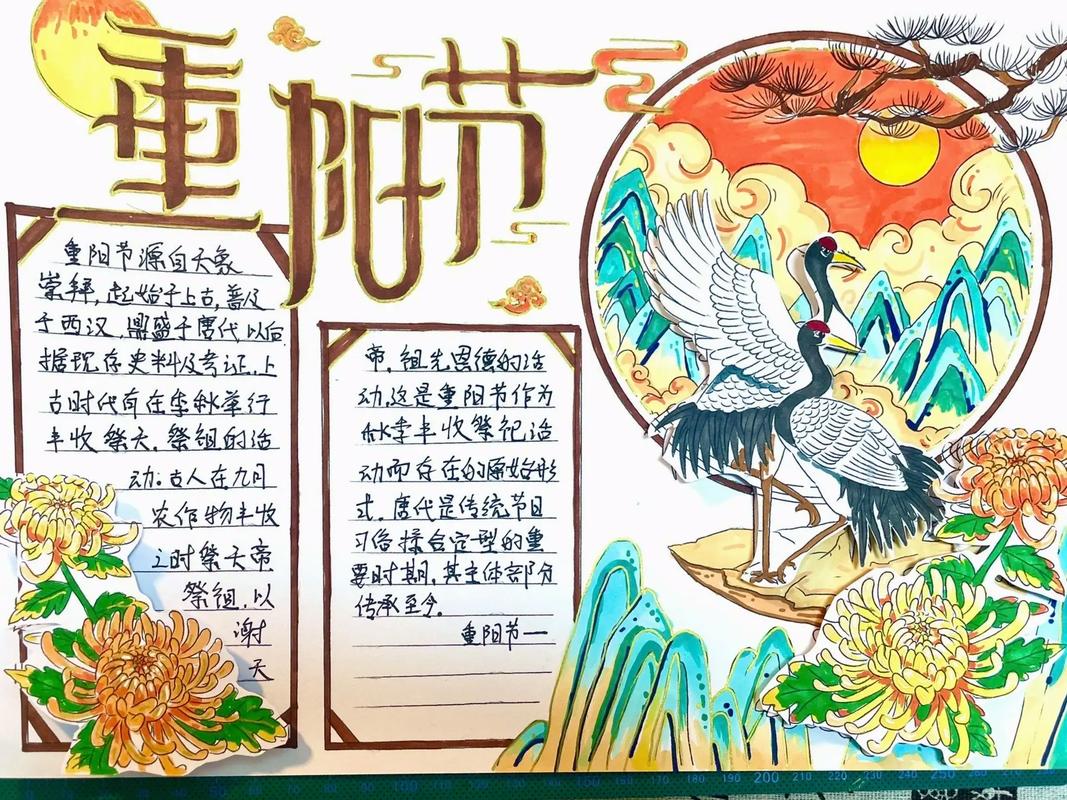 重阳节
重阳节源自天象
崇拜,起始于上古,普及
于西汉,鼎盛于唐代以后.
据现存史料及考证,上
古时代有在季秋举行
丰收祭天、祭祖的活
动;古人在九月
农作物丰收
之时祭天帝
祭祖,以
谢
天
帝、祖先恩德的活
动,这是重阳节作为
秋季丰收祭祀活
动而存在的原始形
式。唐代是传统节日
习俗揉合定型的重
要时期,其主体部分
传承至今。
重阳节一
100
200
210
220
230
240
250
260
270